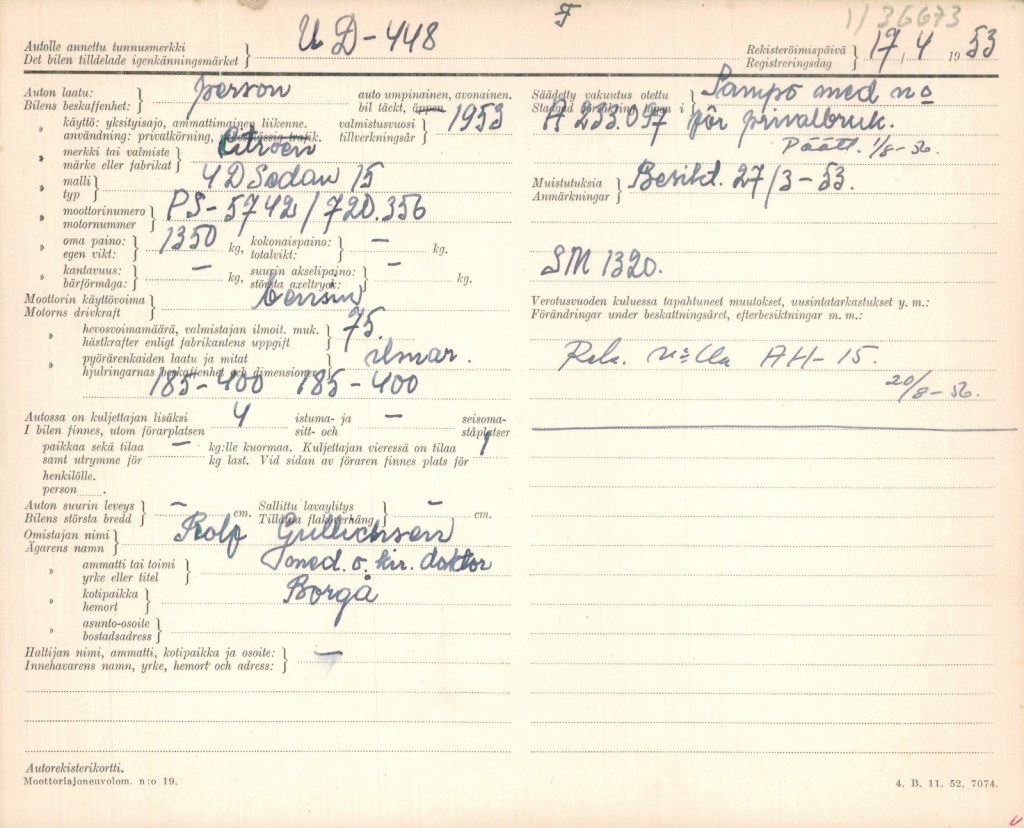 F
1) 36673
Autolle annettu tunnusmerkki
Det bilen tilldelade igenkänningsmärket } UD-448
Rekisteröimispäivä
Registreringsdag } 17/4 1953
Auton laatu:
Bilens beskaffenhet: } person
auto umpinainen, avonainen.
bil täckt, öppen.
» käyttö: yksityisajo, ammattimainen liikenne.
användning: privatkörning, yrkesmässig trafik.
valmistusvuosi
tillverkningsår } 1953
» merkki tai valmiste
märke eller fabrikat } Citroen
» malli
typ } 4 D Sedan 15
» moottorinumero
motornummer } PS-5742/720.356
» oma paino:
egen vikt: } 1350 kg,
kokonaispaino:
totalvikt: } — kg.
» kantavuus:
bärförmåga: } — kg,
suurin akselipaino:
största axeltryck: } — kg.
Moottorin käyttövoima
Motorns drivkraft } bensin
» hevosvoimamäärä, valmistajan ilmoit. muk.
hästkrafter enligt fabrikantens uppgift } 75.
» pyörärenkaiden laatu ja mitat
hjulringarnas beskaffenhet och dimensioner } ilmar.
185-400 185-400
Autossa on kuljettajan lisäksi
I bilen finnes, utom förarplatsen 4
istuma- ja
sitt- och —
seisoma-
ståplatser
paikkaa sekä tilaa
samt utrymme för —
kg:lle kuormaa. Kuljettajan vieressä on tilaa
kg last. Vid sidan av föraren finnes plats för 1
henkilölle.
person .
Auton suurin leveys
Bilens största bredd } — cm.
Sallittu lavaylitys
Tillåtna flaköverhäng } — cm.
Omistajan nimi
Ägarens namn } Rolf Gullichsen
» ammatti tai toimi
yrke eller titel } med. o. kir. doktor
» kotipaikka
hemort } Borgå
» asunto-osoite
bostadsadress }
Haltijan nimi, ammatti, kotipaikka ja osoite:
Innehavarens namn, yrke, hemort och adress: } —
Autorekisterikortti.
Moottoriajoneuvolom. n:o 19.
Säädetty vakuutus otettu
Stadgad försäkring tagen i } Sampo med no
A 233.097 för privatbruk.
Päätt. 1/8-56.
Muistutuksia
Anmärkningar } Besikt. 27/3-53.
SM 1320.
Verotusvuoden kuluessa tapahtuneet muutokset, uusintatarkastukset y. m.:
Förändringar under beskattningsåret, efterbesiktningar m. m.:
Rek. n:lla AH-15.
20/8-56.
4. B. 11. 52. 7074.